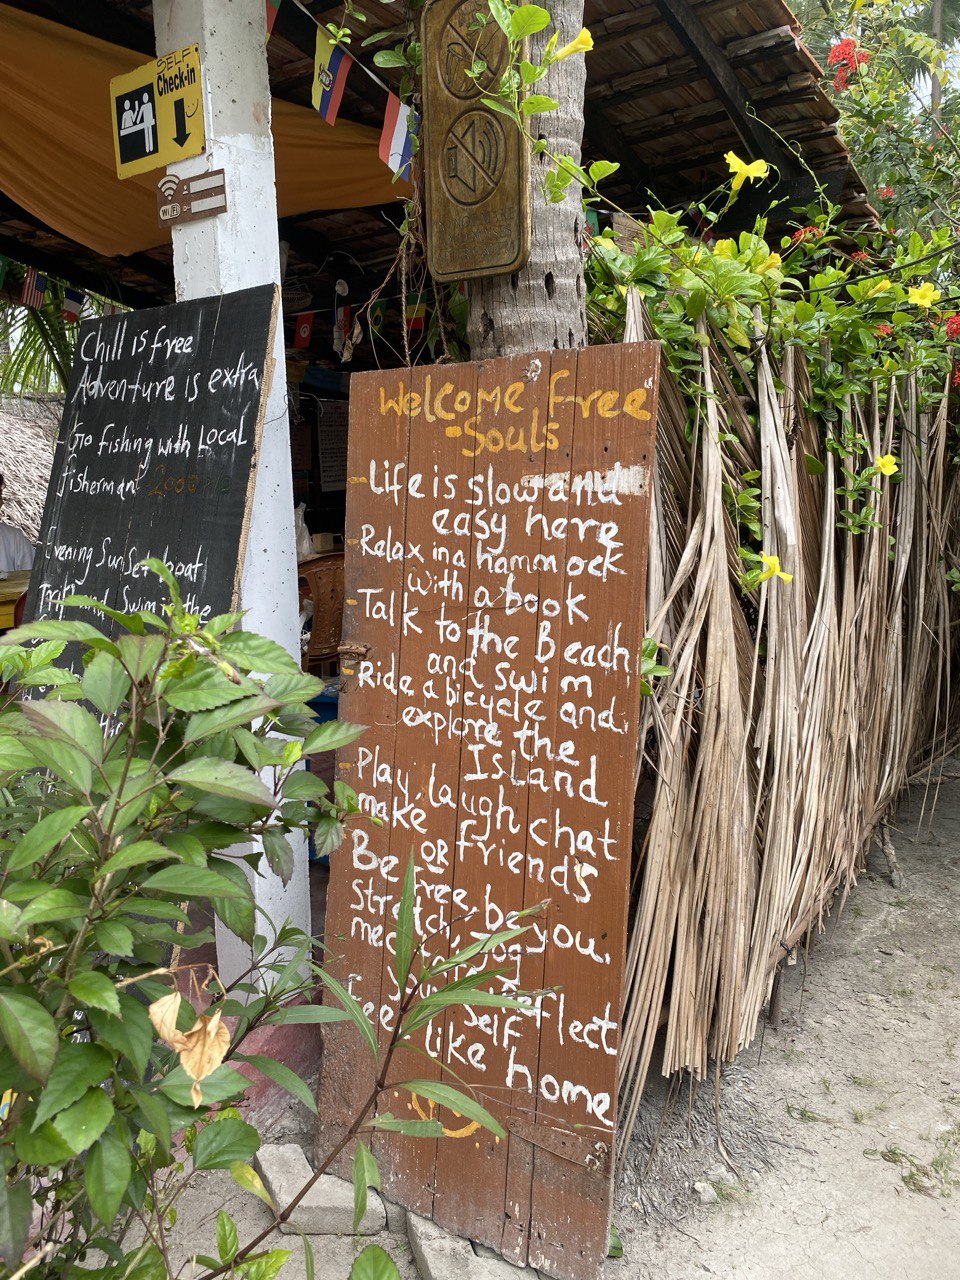 SELF
Check-in
WiFi
Chill is free
Adventure is extra
- Go fishing with Local
fisherman 2000
Evening SunSet boat
Trip and Swim in the
Welcome free
Souls
- Life is slow and
easy here
- Relax in a hammock
with a book
- Talk to the Beach
and swim
- Ride a bicycle and
explore the
Island
- Play, laugh chat
make OR friends
Be free, be you.
Stretch, Jog
reflect
your self
Feel like home